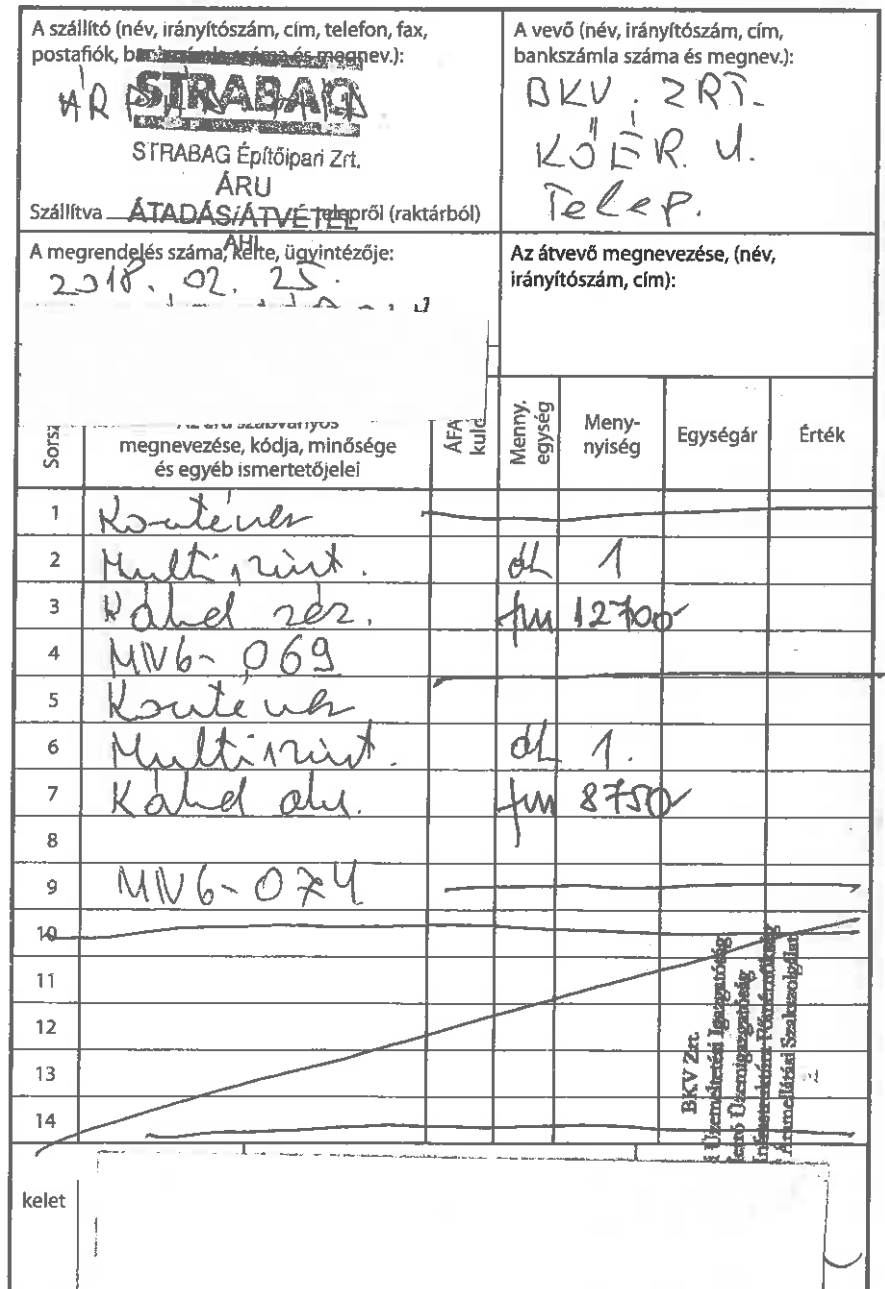 A szállító (név, irányítószám, cím, telefon, fax,
postafiók, bankszámla száma és megnev.):
STRABAG
STRABAG Építőipari Zrt.
ÁRU
ÁTADÁS/ÁTVÉTEL
Szállítva telepről (raktárból)
A vevő (név, irányítószám, cím,
bankszámla száma és megnev.):
BKV. ZRT.
KŐÉR. U.
Telep.
A megrendelés száma, kelte, ügyintézője:
2018. 02. 25.
Az átvevő megnevezése, (név,
irányítószám, cím):
Sorsz
Az áru szabványos
megnevezése, kódja, minősége
és egyéb ismertetőjelei
ÁFA
kulc
Menny.
egység
Meny-
nyiség
Egységár
Érték
1 Konténer
2 Multi szint. db 1
3 Kábel réz. fm 12700
4 MV6-069
5 Konténer
6 Multi szint. db 1.
7 Kábel alu. fm 8750
8
9 MV6-074
10
11
12
13
14
BKV Zrt.
Üzemeltetési Igazgatóság
Üzemigazgatóság
Infrastruktúra Főmérnökség
Áramellátási Szakszolgálat
kelet